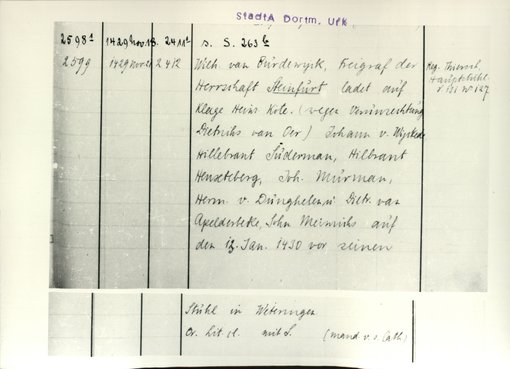 StadtA Dortm. Urk.
2598a 1429 Nov. 13. 2411a s. S. 263b
2599 1429 Nov. 2412 Wilh. van Bürdewyck, Freigraf der
Herrschaft Steinfurt ladet auf
Klage Heinr. Kole. (wegen
Dietrichs van Oer) Johann v. Wyckede
Hillebrant Süderman, Hilbrant
Henxteberg, Joh. Mürman,
Herm. v. Dünghelen u. Dietr. van
Apelderbeke, Sohn Meinrichs auf
den 12. Jan. 1430 vor seinen
Reg. Thiersch,
Hauptstuhl
No 127
Stuhl in Weteringen
Or. Lit. mit S. (mand. v. s. Cath.)